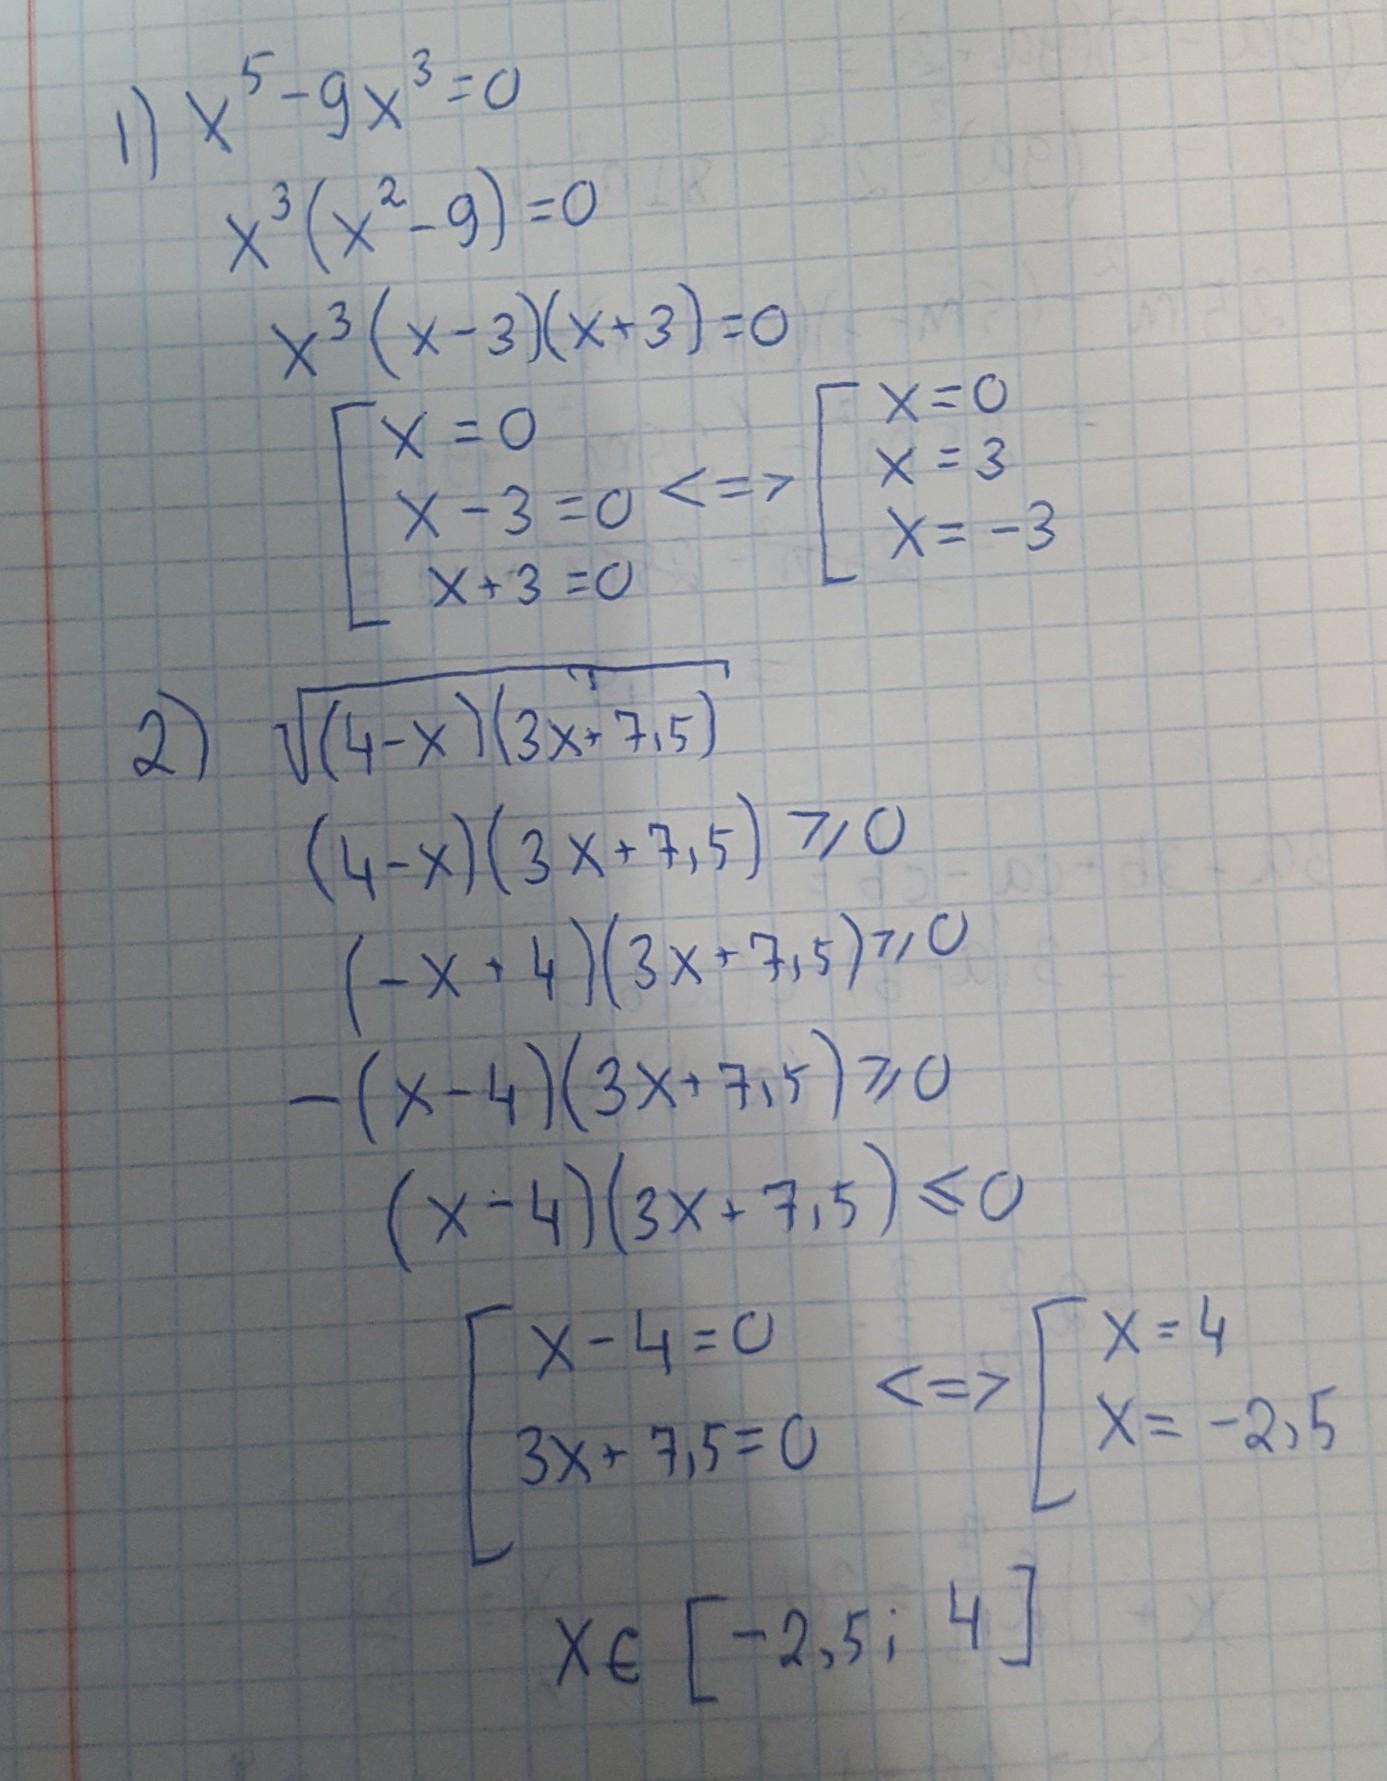 1) x⁵-9x³=0
x³(x²-9)=0
x³(x-3)(x+3)=0
[x=0 x-3=0 x+3=0 <=> [x=0 x=3 x=-3
2) √(4-x)(3x+7,5)
(4-x)(3x+7,5)⩾0
(-x+4)(3x+7,5)⩾0
-(x-4)(3x+7,5)⩾0
(x-4)(3x+7,5)⩽0
[x-4=0 3x+7,5=0 <=> [x=4 x=-2,5
x∈[-2,5; 4]